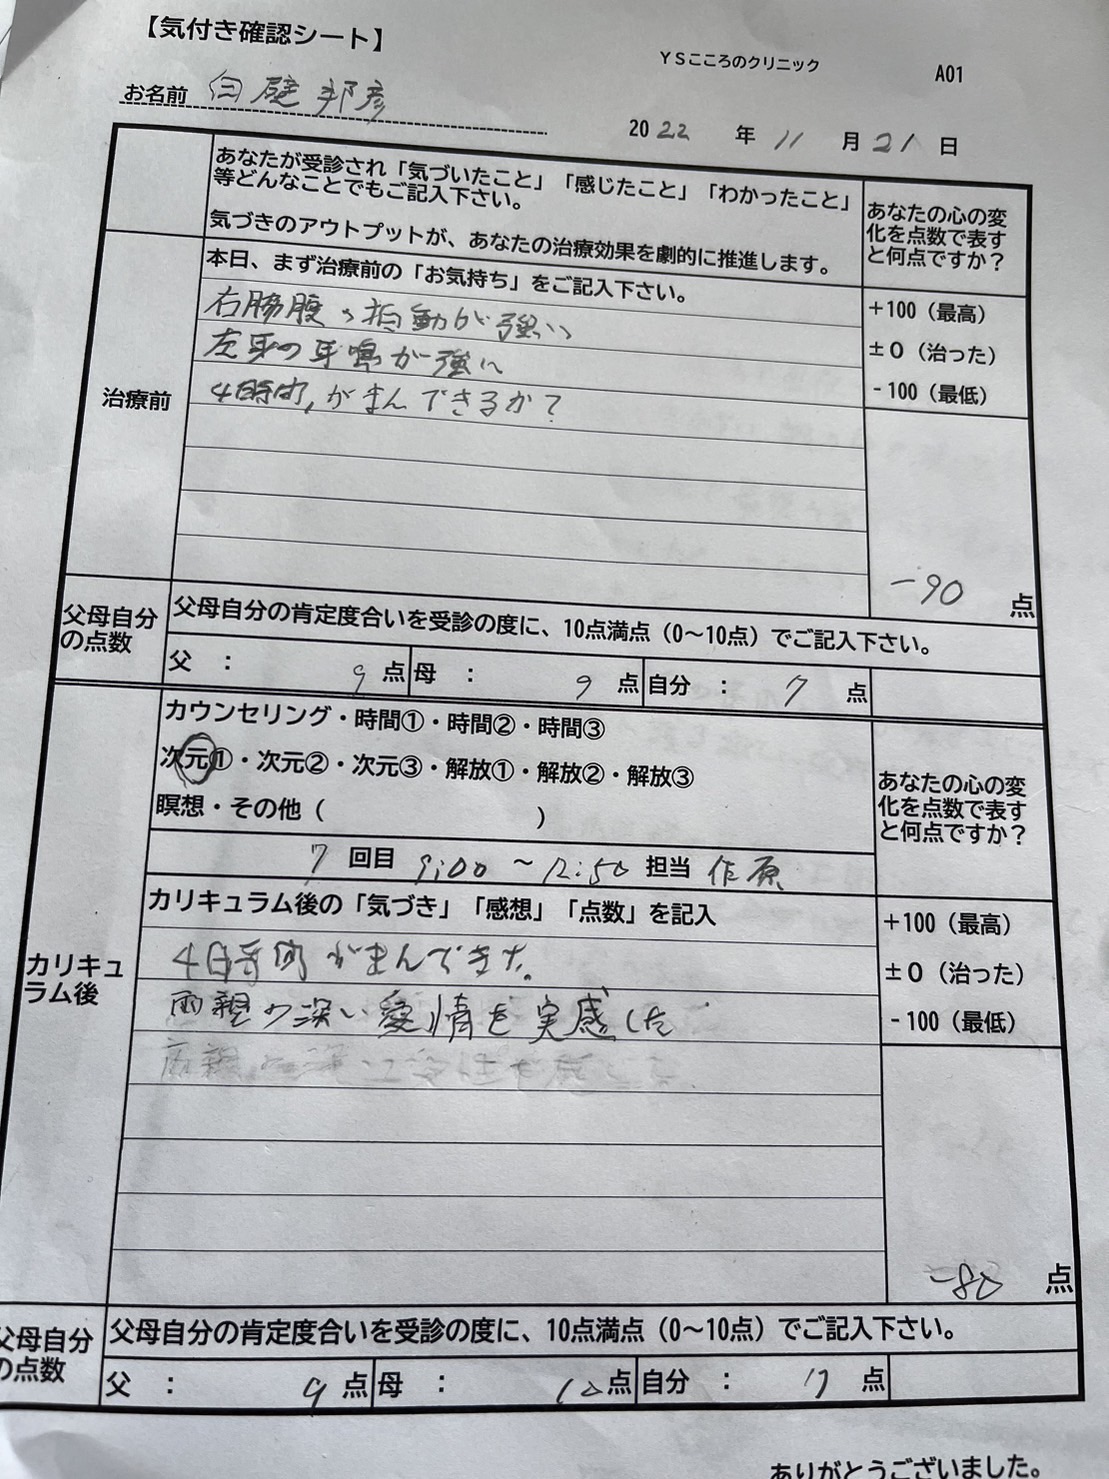 【気付き確認シート】
YSこころのクリニック
A01
お名前 白壁 邦彦
2022 年 11 月 21 日
あなたが受診され「気づいたこと」「感じたこと」「わかったこと」
等どんなことでもご記入下さい。
気づきのアウトプットが、あなたの治療効果を劇的に推進します。
あなたの心の変
化を点数で表す
と何点ですか？
治療前
本日、まず治療前の「お気持ち」をご記入下さい。
右脇腹の拍動が強い
左耳の耳鳴が強い
4時間,がまんできるか？
+100（最高）
±0（治った）
-100（最低）
-90 点
父母自分
の点数
父母自分の肯定度合いを受診の度に、10点満点（0〜10点）でご記入下さい。
父 ： 9 点 母 ： 9 点 自分 ： 7 点
カウンセリング・時間①・時間②・時間③
次元①・次元②・次元③・解放①・解放②・解放③
瞑想・その他（ ）
7 回目 9:00 〜 12:50 担当 作原
あなたの心の変
化を点数で表す
と何点ですか？
カリキュ
ラム後
カリキュラム後の「気づき」「感想」「点数」を記入
4時間がまんできた。
両親の深い愛情を実感した
+100（最高）
±0（治った）
-100（最低）
-80 点
父母自分
の点数
父母自分の肯定度合いを受診の度に、10点満点（0〜10点）でご記入下さい。
父 ： 9 点 母 ： 10 点 自分 ： 7 点
ありがとうございました。